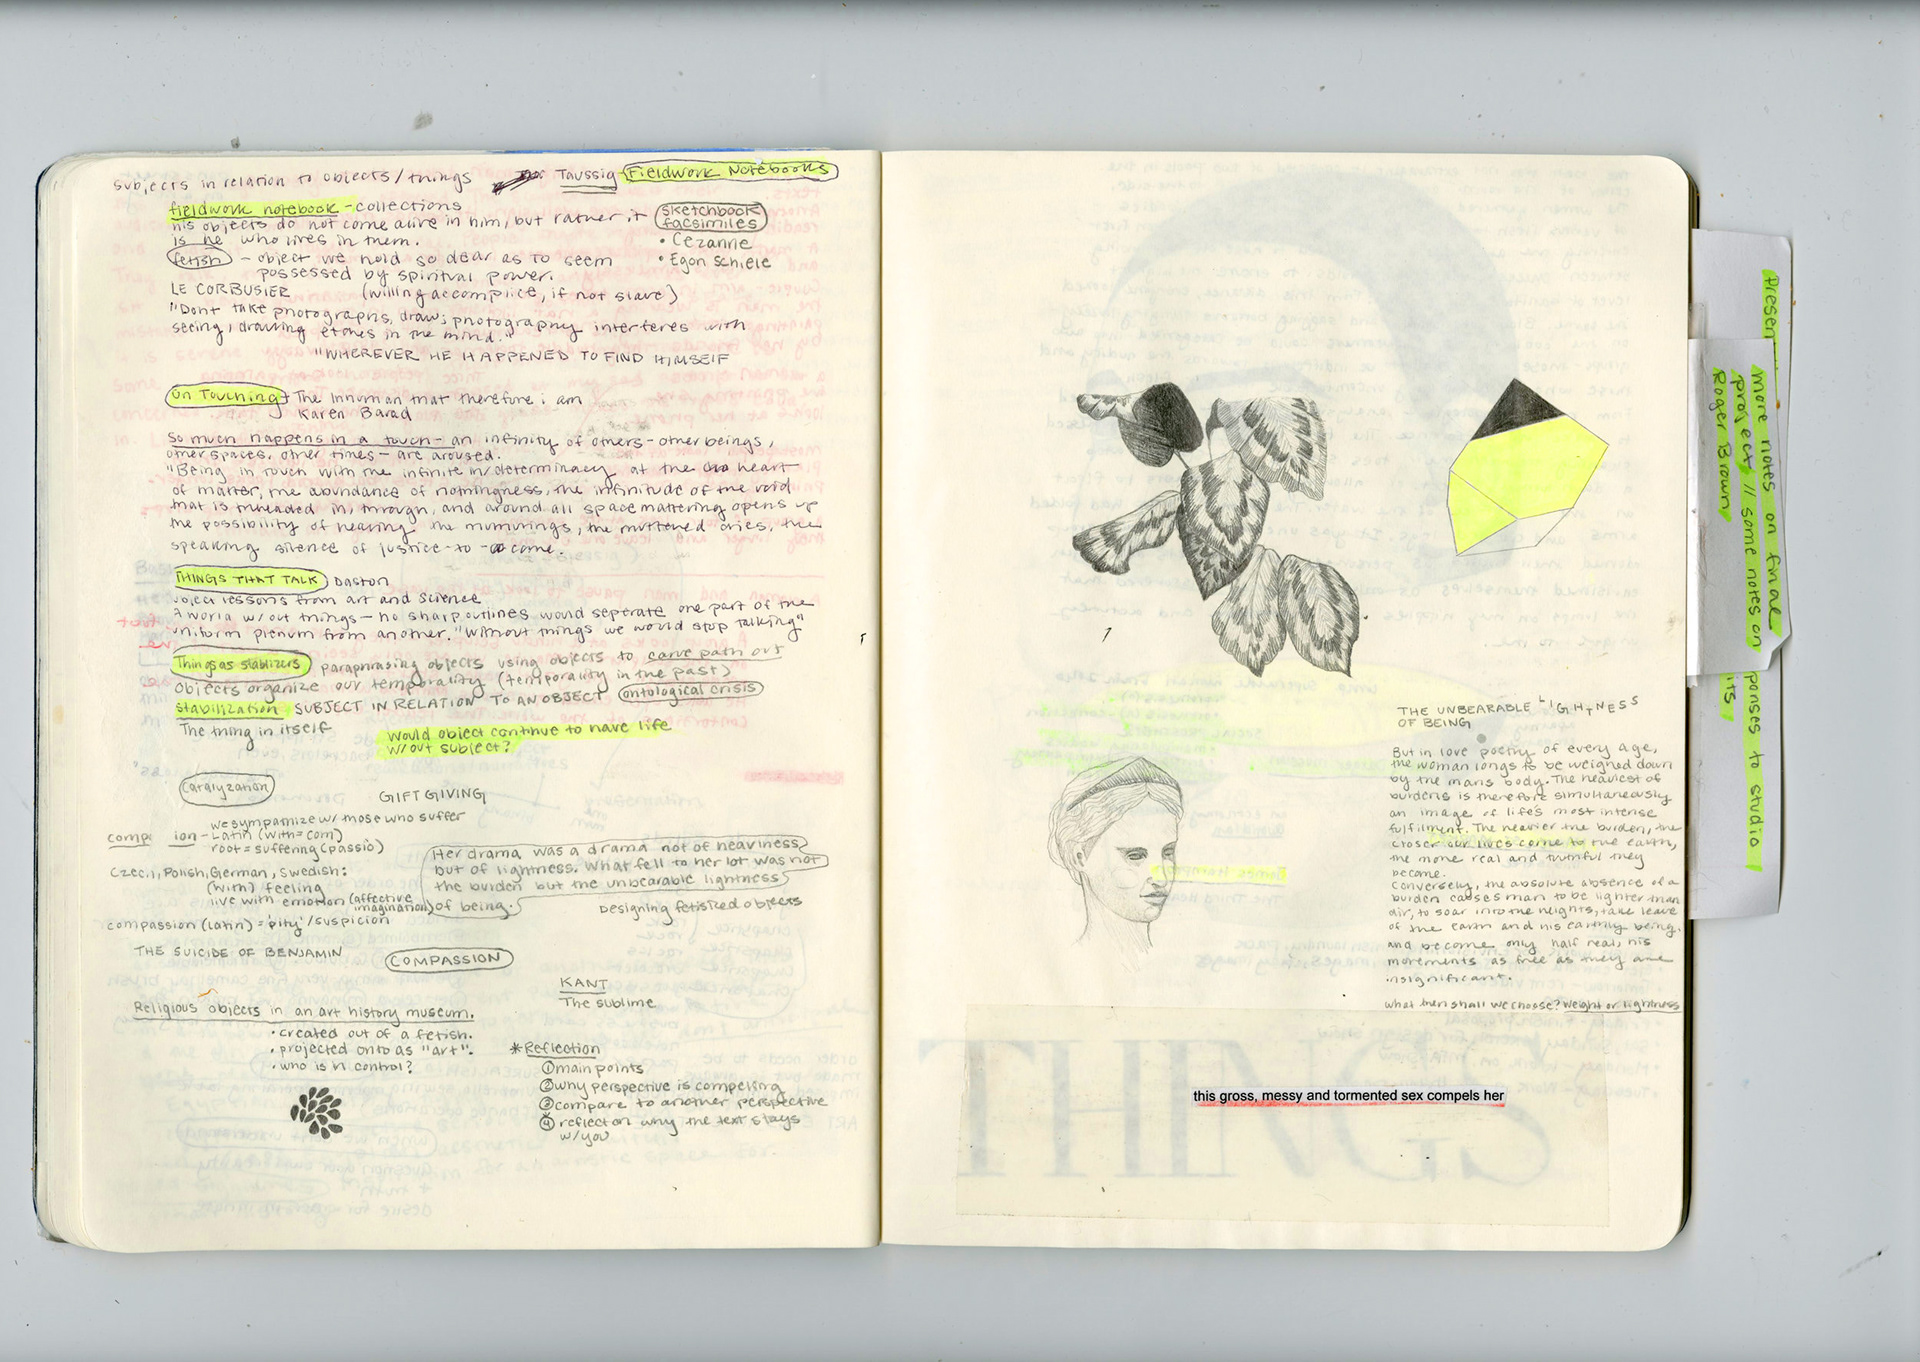 subjects in relation to objects/things Taussig Fieldwork Notebooks
fieldwork notebook - collections
his objects do not come alive in him, but rather it
is he who lives in them.
sketchbook
facsimiles
• Cezanne
• Egon Schiele
fetish - object we hold so dear as to seem
possessed by spiritual power.
LE CORBUSIER (willing accomplice, if not slave)
"Dont take photographs, draw; photography interferes with
seeing, drawing etches in the mind."
"WHEREVER HE HAPPENED TO FIND HIMSELF
On Touching + The Inhuman that therefore i am
Karen Barad
So much happens in a touch - an infinity of others - other beings,
other spaces, other times - are aroused.
"Being in touch with the infinite in/determinacy at the heart
of matter, the abundance of nothingness, the infinitude of the void
that is threaded in, through, and around all spacemattering opens up
the possibility of hearing the murmurings, the muttered cries, the
speaking silence of justice-to-come.
THINGS THAT TALK Daston
object lessons from art and science
A world w/out things - no sharp outlines would seperate one part of the
uniform plenum from another. "Without things we would stop talking"
Things as stablizers paraphrasing objects using objects to carve path out
objects organize our temporality (temporality in the past)
stabilization SUBJECT IN RELATION TO AN OBJECT ontological crisis
The thing in itself
would object continue to have life
w/out subject?
Catalyzation
GIFT GIVING
we sympathize w/ those who suffer
comp ion - Latin (with = com)
root = suffering (passio)
Czech, Polish, German, Swedish:
(with) feeling
live with emotion (affective
imagination)
compassion (latin) = 'pity'/suspicion
Her drama was a drama not of heaviness
but of lightness. What fell to her lot was not
the burden but the unbearable lightness
of being.
Designing fetisized objects
THE SUICIDE OF BENJAMIN
COMPASSION
KANT
The sublime
Religious objects in an art history museum.
• created out of a fetish.
• projected onto as "art".
• who is in control?
*Reflection
① main points
② why perspective is compelling
③ compare to another perspective
④ reflect on why the text stays
w/you
THE UNBEARABLE LIGHTNESS
OF BEING
But in love poetry of every age,
the woman longs to be weighed down
by the mans body. The heaviest of
burdens is therefore simultaneously
an image of life's most intense
fulfilment. The heavier the burden, the
closer our lives come to the earth,
the more real and truthful they
become.
Conversely, the absolute absence of a
burden causes man to be lighter than
air, to soar into the heights, take leave
of the earth and his earthly being,
and become only half real, his
movements as free as they are
insignificant.
What then shall we choose? Weight or lightness
this gross, messy and tormented sex compels her
Presen
more notes on final
project // some notes on
Roger Brown
ponses to studio
its